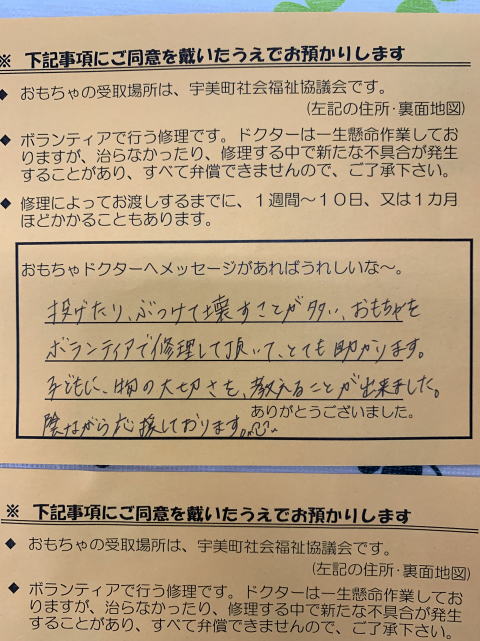 ※ 下記事項にご同意を戴いたうえでお預かりします
◆ おもちゃの受取場所は、宇美町社会福祉協議会です。
(左記の住所・裏面地図)
◆ ボランティアで行う修理です。ドクターは一生懸命作業してお
りますが、治らなかったり、修理する中で新たな不具合が発生
することがあり、すべて弁償できませんので、ご了承下さい。
◆ 修理によってお渡しするまでに、1週間～10日、又は1カ月
ほどかかることもあります。
おもちゃドクターへメッセージがあればうれしいな～。
投げたり、ぶつけて壊すことが多い、おもちゃを
ボランティアで修理して頂いて、とても助かります。
子どもに、物の大切さを、教えることが出来ました。
ありがとうございました。
陰ながら応援しております。
※ 下記事項にご同意を戴いたうえでお預かりします
◆ おもちゃの受取場所は、宇美町社会福祉協議会です。
(左記の住所・裏面地図)
◆ ボランティアで行う修理です。ドクターは一生懸命作業してお
りますが、治らなかったり、修理する中で新たな不具合が発生
することがあり、すべて弁償できませんので、ご了承下さい。